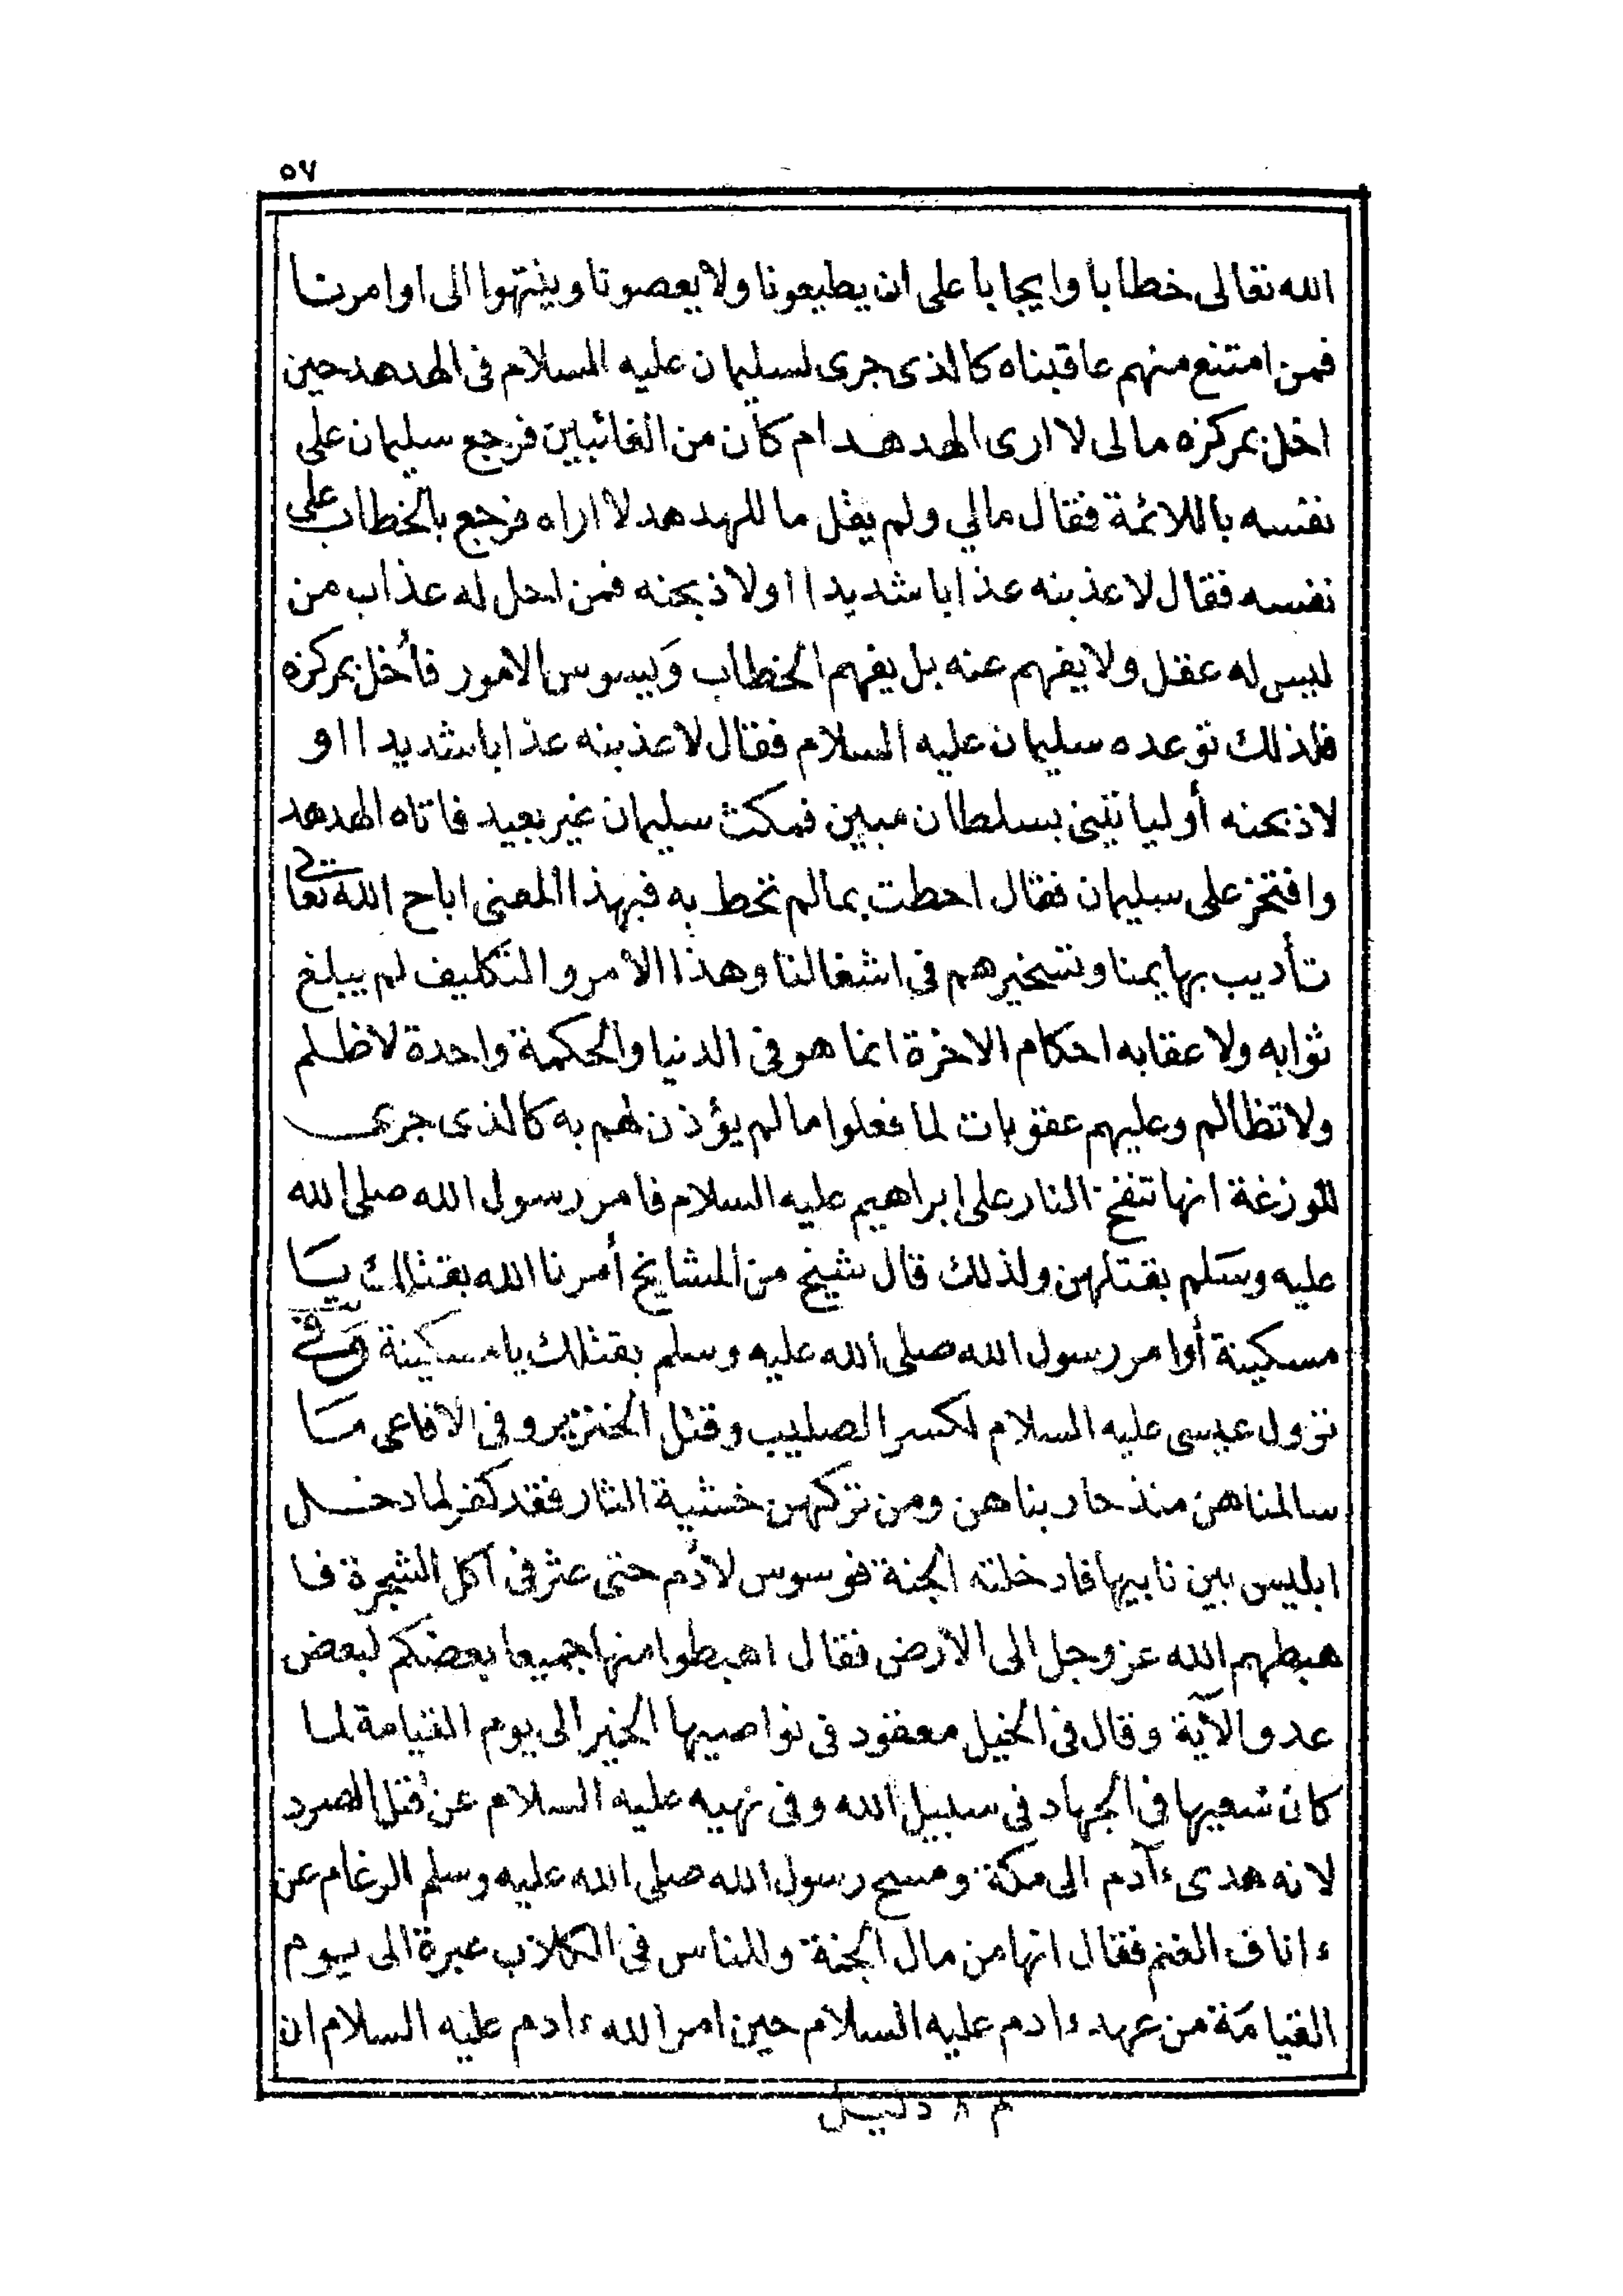 ٥٧
الله تعالى خطابا وايجابا على ان يطيعونا ولا يعصونا وينتهوا الى اوامرنا
فمن امتنع منهم عاقبناه كالذى جرى لسليمان عليه السلام فى الهدهد حين
اخل بمركزه مالى لا ارى الهدهد ام كان من الغائبين فرجع سليمان على
نفسه باللائمة فقال مالي ولم يقل ما للهدهد لا اراه فرجع بالخطاب على
نفسه فقال لاعذبنه عذابا شديدا اولاذبحنه فمن احل له عذاب من
ليس له عقل ولا يفهم عنه بل يفهم الخطاب وَيسوس الامور فأخل بمركزه
فلذلك توعده سليمان عليه السلام فقال لاعذبنه عذابا شديدا او
لاذبحنه أوليا تينى بسلطان مبين فمكث سليمان غير بعيد فاتاه الهدهد
وافتخر على سليمان فقال احطت بمالم تحط به فبهذا المعنى اباح الله تعالى
تأديب بهايمنا وتسخيرهم في اشغالنا وهذا الامر والتكليف لم يبلغ
ثوابه ولا عقابه احكام الاخرة انما هو فى الدنيا والحكمة واحدة لاظلم
ولا تظالم وعليهم عقوبات لما فعلوا ما لم يؤذن لهم به كالذى جرى
للوزغة انها تنفخ النار على ابراهيم عليه السلام فامر رسول الله صلى الله
عليه وسَلم بقتلهن ولذلك قال شيخ من المشايخ أمرنا الله بقتلك يَا
مسكينة أوامر رسول الله صلى الله عليه وسلم بقتلك يا مسكينة وَفي
نزول عيسى عليه السلام لكسر الصليب وقتل الخنزير وفى الافاعى مَا
سالمناهن منذ حاربناهن ومن تركهن خشية الثار فقد كفر لما دخل
ابليس بين نابيها فادخلته الجنة فوسوس لأدم حتى عثر فى اكل الشجرة فا
هبطهم الله عز وجل الى الارض فقال اهبطوا منها جميعا بعضكم لبعض
عدو الآية وقال فى الخيل معقود فى نواصيها الخير الى يوم القيامة لما
كان سعيها فى الجهاد فى سبيل الله وفى نهيه عليه السلام عن قتل الصرد
لانه هدى ءآدم الى مكة ومسح رسول الله صلى الله عليه وسلم الرغام عن
ءاناف الغنم فقال انها من مال الجنة وللناس فى الكلاب عبرة الى يوم
القيامَة من عهد ءادم عليه السلام حين امر الله ءادم عليه السلام ان
م ٨ دليل